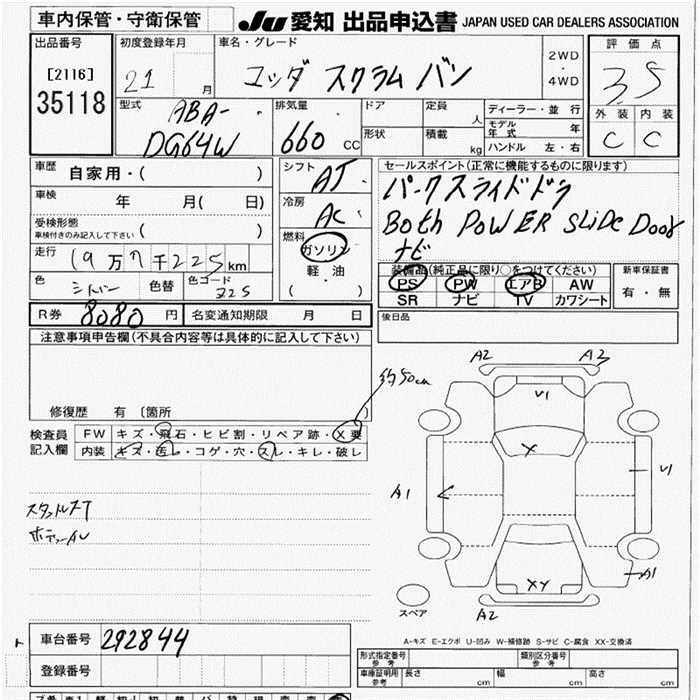 車内保管・守衛保管
JU 愛知 出品申込書 JAPAN USED CAR DEALERS ASSOCIATION
出品番号
[2116]
35118
初度登録年月
21 月
車名・グレード
マツダ スクラム バン
2WD
・
4WD
評価点
3.5
外装 内装
C C
型式
ABA-
DG64W
排気量
660 CC
ドア
形状
定員 人
積載 kg
ディーラー・並 行
モデル年式 年
ハンドル 左・右
車歴 自家用・( )
車検 年 月( 日)
受検形態
車検付きのみ記入して下さい ( )
走行 19万7千225km
色 シルバー 色替 色コード Z2S
シフト AT
冷房 AC
燃料
ガソリン
軽 油
( ・ )
セールスポイント(正常に機能するものに限ります)
パークスライドドア
Both PoWER SLiDe Door
ナビ
装備品(純正品に限り○をつけてください)
PS PW エアB AW
SR ナビ TV カワシート
新車保証書
有・無
R券 8080 円 名変通知期限 月 日
後日品
注意事項申告欄(不具合内容等は具体的に記入して下さい)
修復歴 有 〔箇所 〕
約50cm
検査員
記入欄
FW キズ・飛石・ヒビ割・リペア跡・X要
内装 キズ・汚レ・コゲ・穴・スレ・キレ・破レ
A2 A2
U1
Y
A1
U1
XY
A1
A2
スペア
A-キズ E-エクボ U-凹み W-補修跡 S-サビ C-腐食 XX-交換済
ト
車台番号 292844
登録番号
形式指定番号
参考
類別区分番号
参考
車庫証明用
参考
長さ cm 幅 cm 高さ cm